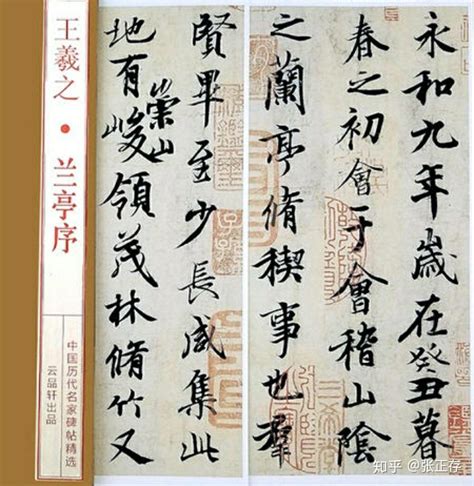 永和九年歲在癸丑暮
春之初會于會稽山陰
之蘭亭脩稧事也羣
賢畢至少長咸集此
地有崇山峻領茂林脩竹又
王羲之·兰亭序
中国历代名家碑帖精选
云品轩出品
知乎 @张正存